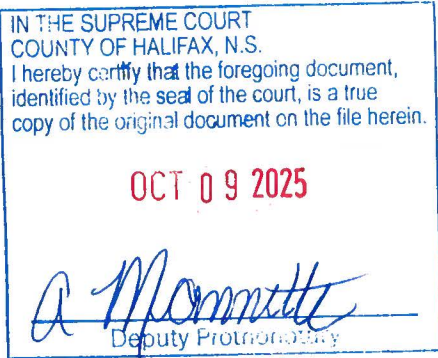 IN THE SUPREME COURT
COUNTY OF HALIFAX, N.S.
I hereby certify that the foregoing document,
identified by the seal of the court, is a true
copy of the original document on the file herein.
OCT 09 2025
A
Deputy Prothonotary